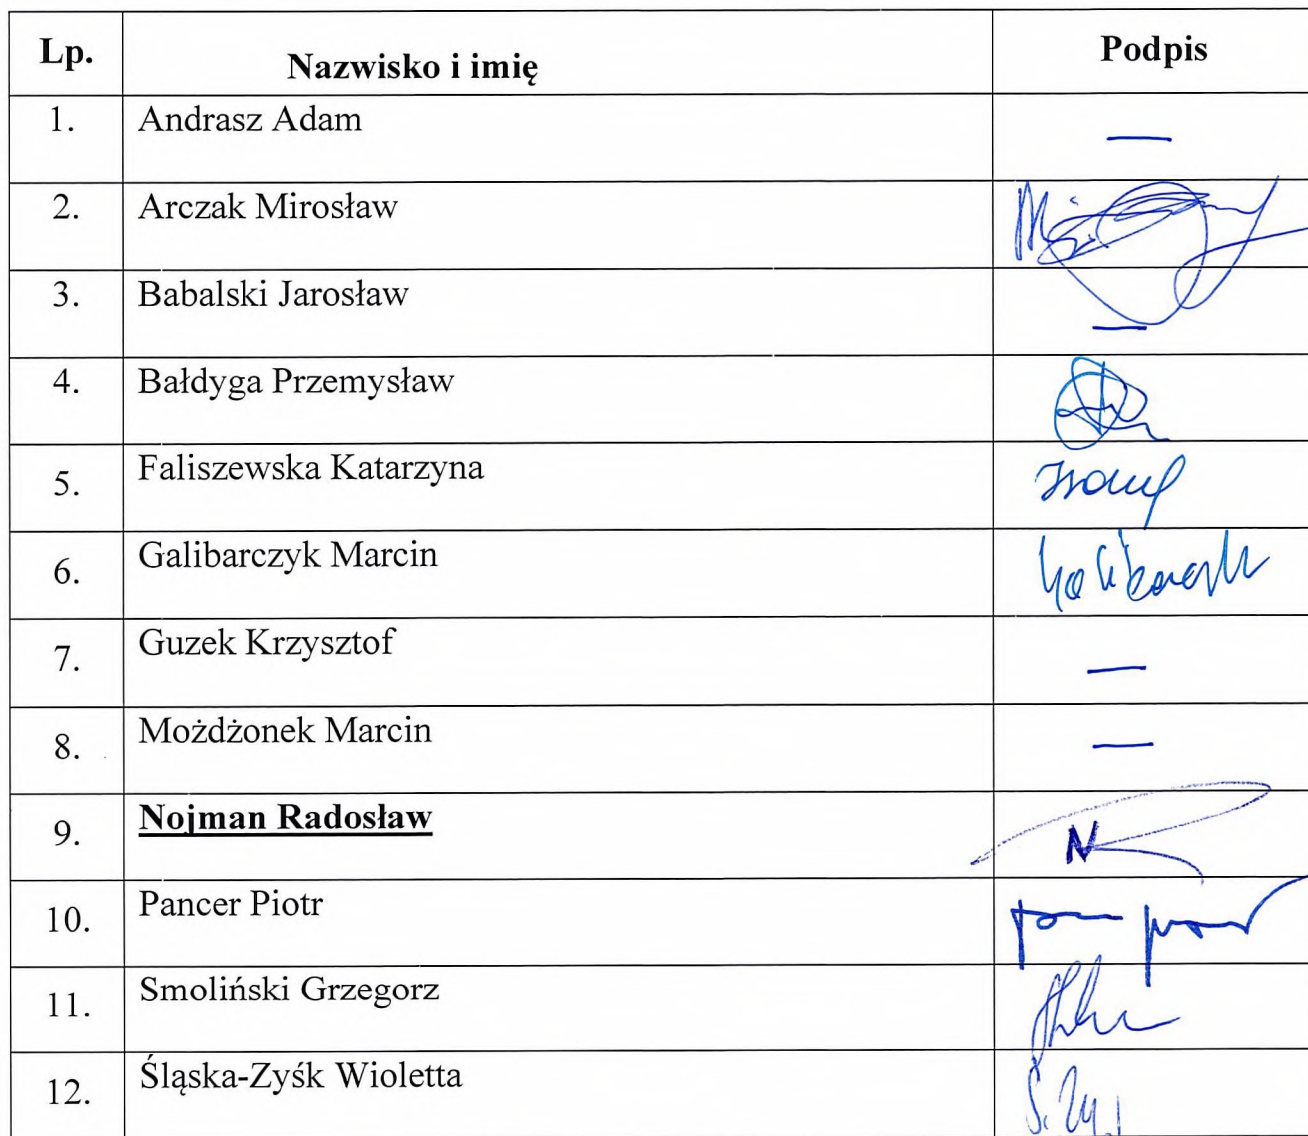 Lp. Nazwisko i imię Podpis
1. Andrasz Adam —
2. Arczak Mirosław
3. Babalski Jarosław —
4. Bałdyga Przemysław
5. Faliszewska Katarzyna
6. Galibarczyk Marcin
7. Guzek Krzysztof —
8. Możdżonek Marcin —
9. Nojman Radosław
10. Pancer Piotr
11. Smoliński Grzegorz
12. Śląska-Zyśk Wioletta